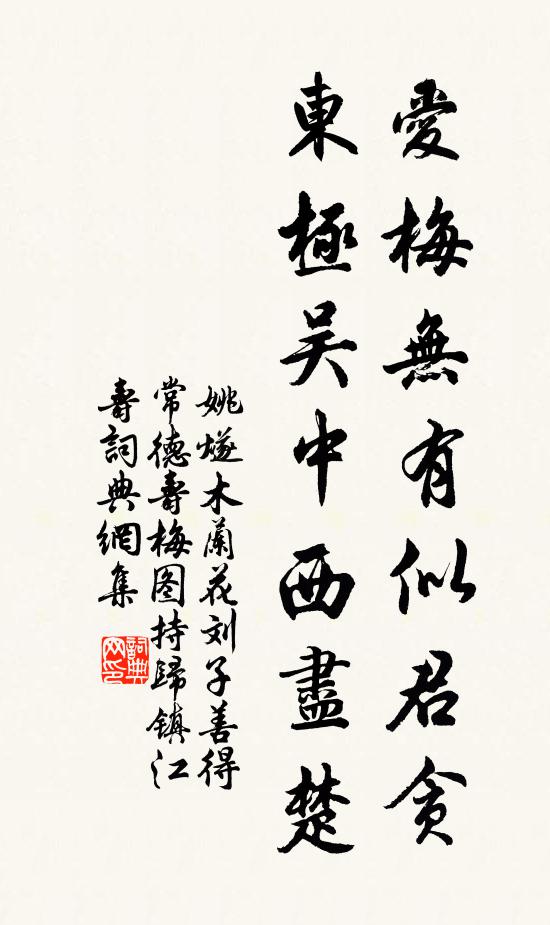 愛梅無有似君貪
東極吴中西盡楚
姚燧木蘭花刘子善得
常德壽梅图持歸镇江
壽詞典網集
詞典網印